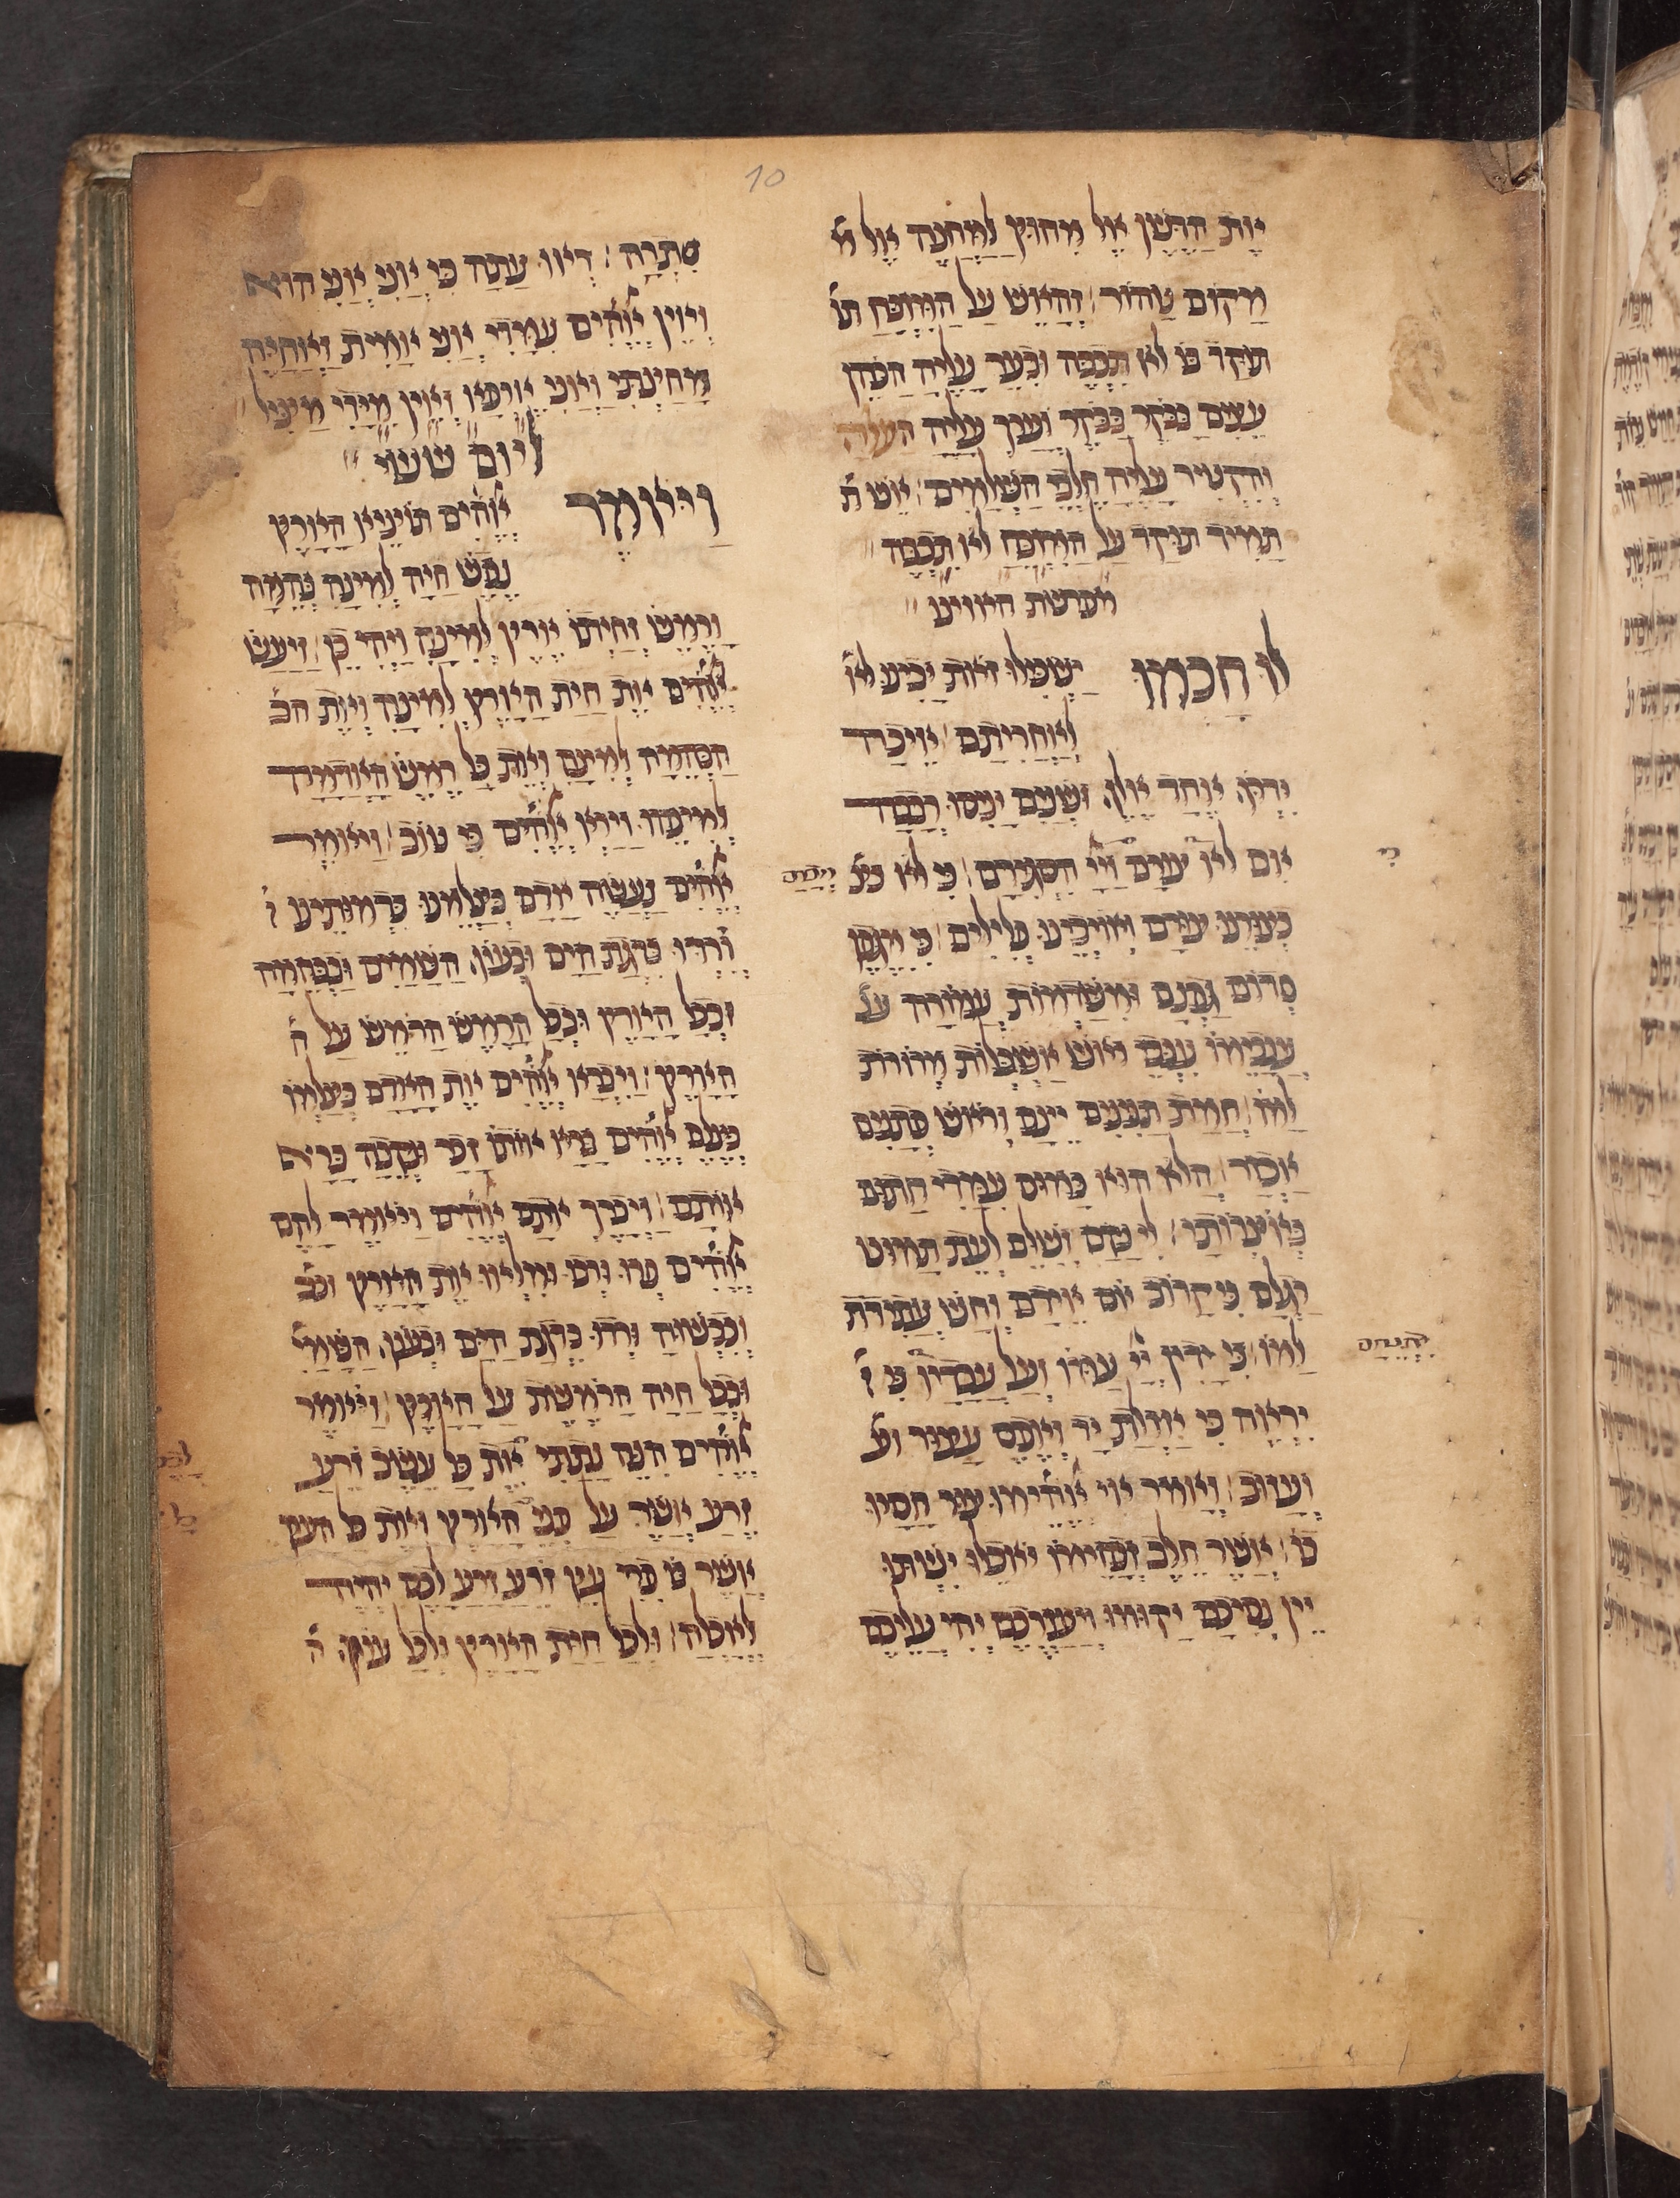 10
את הדשן אל מחוץ למחנה אל מ
מקום טהור׃ והאש על המזבח תו
תוקד בו לא תכבה ובער עליה הכהן
עצים בבקר בבקר וערך עליה העולה
והקטיר עליה חלבי השלמים׃ אש ת
תמיד תוקד על המזבח לא תכבה
מפרשת האזינו
לו חכמו
ישכילו זאת יבינו לא
לאחריתם׃ איכה
ירדף אחד אלף ושנים יניסו רבבה
אם לא צורם וייי הסגירם׃ כי לא כצ
כצורנו צורם ואויבינו פלילים׃ כי מגפן
סדום גפנם ומשדמות עמורה ענ
ענבימו ענבי ראש אשכלות מרורות
למו׃ חמת תנינם יינם וראש פתנים
אכזר׃ הלא הוא כמוס עמדי חתום
באוצרותי׃ לי נקם ושלם לעת תמוט
רגלם כי קרוב יום אידם וחש עתידת
למו׃ כי ידין ייי עמו ועל עבדיו כי י
יראה כי אזלת יד ואפס עצור וע
ועזוב׃ ואמר אי אלהימו צור חסיו
בו׃ אשר חלב זבחימו יאכלו ישתו
יין נסיכם יקומו ויעזרכם יהי עליכם
סתרה׃ ראו עתה כי אני אני הוא
ואין אלהים עמדי אני אמית ואחיה
מחצתי ואני ארפא ואין מידי מציל
ליום ששי
ויאמר
אלהים תוצא הארץ
נפש חיה למינה בהמה
ורמש וחיתו ארץ למינה ויהי כן׃ ויעש
אלהים את חית הארץ למינה ואת הב
הבהמה למינה ואת כל רמש האדמה
למינהו וירא אלהים כי טוב׃ ויאמר
אלהים נעשה אדם בצלמנו כדמותינו ו
וירדו בדגת הים ובעוף השמים ובבהמה
ובכל הארץ ובכל הרמש הרמש על ה
הארץ׃ ויברא אלהים את האדם בצלמו
בצלם אלהים ברא אותו זכר ונקבה ברא
אותם׃ ויברך אותם אלהים ויאמר להם
אלהים פרו ורבו ומלאו את הארץ וכב
וכבשוה ורדו בדגת הים ובעוף השמי
ובכל חיה הרמשת על הארץ׃ ויאמר
אלהים הנה נתתי את כל עשב זרע
זרע אשר על פני הארץ ואת כל העץ
אשר בו פרי עץ זרע זרע לכם יהיה
לאכלה׃ ולכל חית הארץ ולכל עוף ה